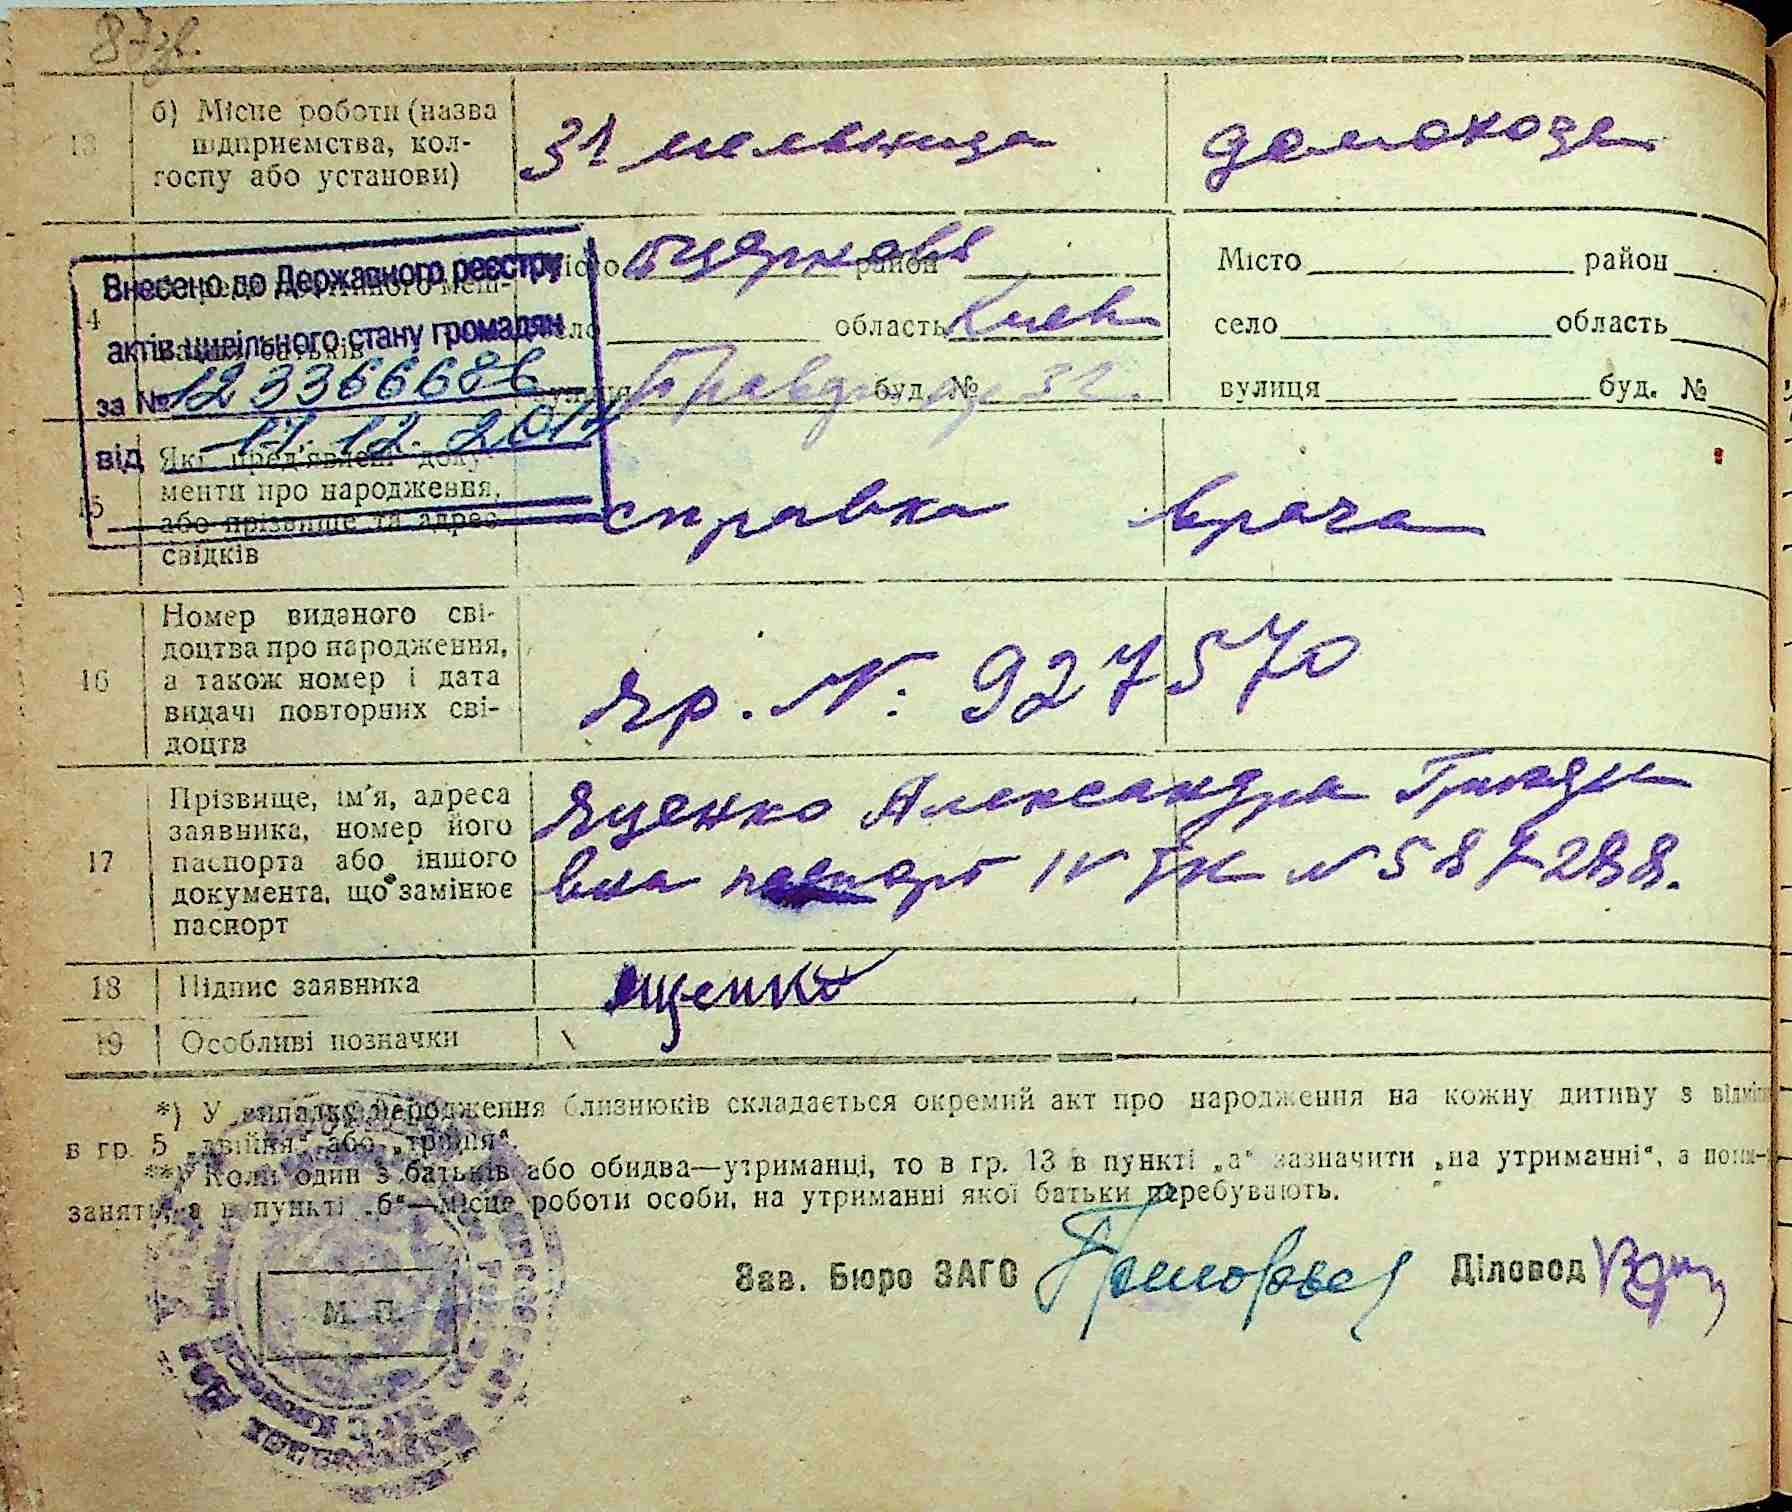 87зв.
13
б) Місце роботи (назва
підприємства, кол-
госпу або установи)
31 мельница
домохоз
14
Внесено до Державного реєстру
актів цивільного стану громадян
за № 123366686
від 17.12.201
місто Б церковь район
село область Киев
вулиця буд. № 32.
Місто район
село область
вулиця буд. №
15
Які пред'явлені доку-
менти про народження,
або прізвище та адрес
свідків
справка врача
16
Номер виданого сві-
доцтва про народження,
а також номер і дата
видачі повторних сві-
доцтв
яр. N: 927570
17
Прізвище, ім'я, адреса
заявника, номер його
паспорта або іншого
документа, що замінює
паспорт
Яценко Александра
вна паспорт IV N 587288.
18
Підпис заявника
Яценко
19
Особливі позначки
*) У випадку народження близнюків складається окремий акт про народження на кожну дитину з відміт
в гр. 5 „двійня“ або „трійня“.
**) Коли один з батьків або обидва—утриманці, то в гр. 13 в пункті „а“ зазначити „на утриманні“, а
занять, а в пункті „б“—місце роботи особи, на утриманні якої батьки перебувають.
Зав. Бюро ЗАГС
Діловод
М. П.